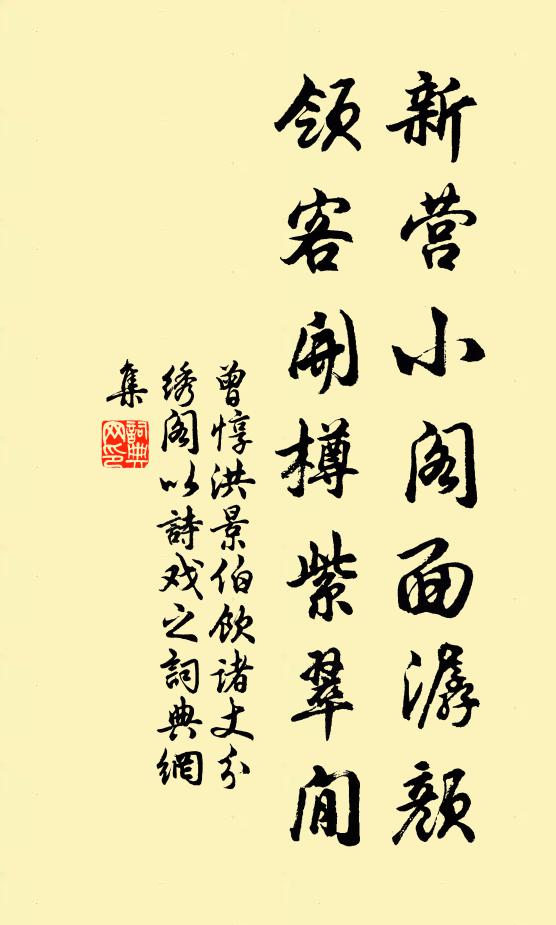 新营小阁面潺颜
领客開樽紫翠间
曾惇洪景伯飲诸丈分
绣阁以詩戏之詞典網
集
詞典
网印